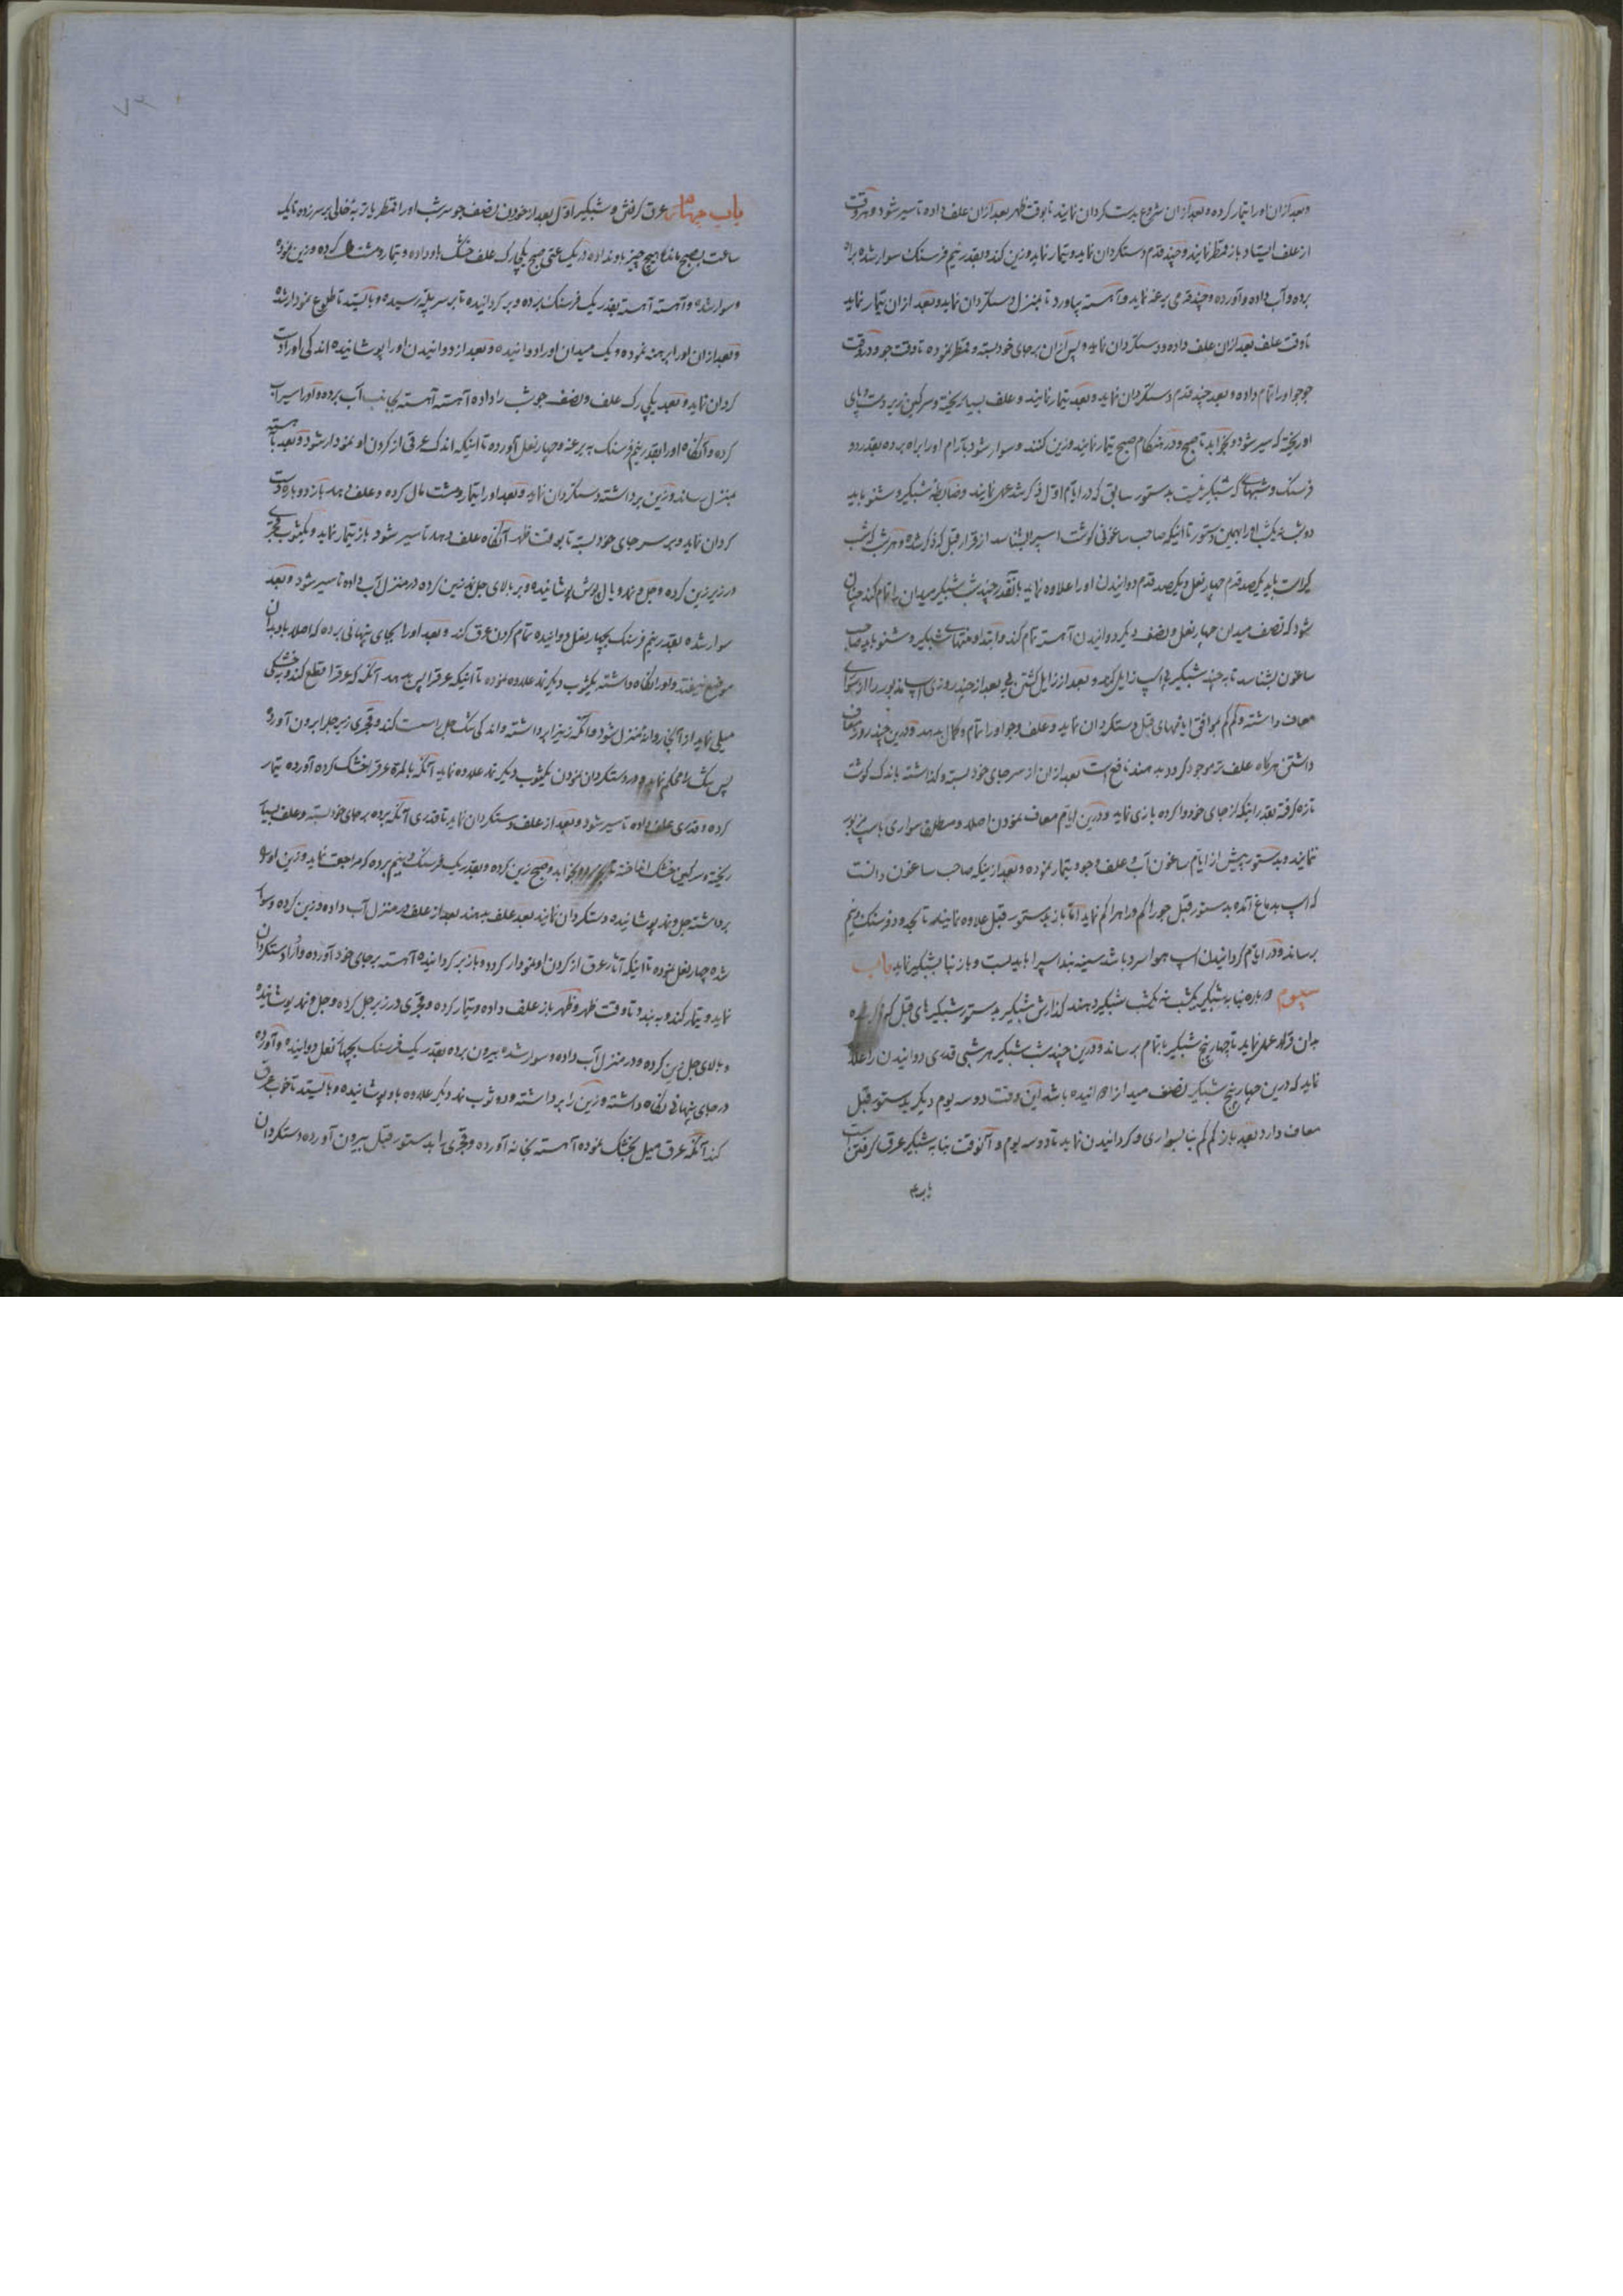 وبعد ازان اورا تیمار کرده وبعد ازان شروع بدست کردان نمایند تا بوقت ظهر بعد ازان علف داده تا سیر شود وهر وقت
از علف ایستاد باز قمطر نمایند وچند قدم دستکردان نماید وتیمار نماید وزین کند وبقدر نیم فرسنک سوار شده براه
برده وآب داده وآورده وچند قدمی یرغه نماید وآهسته بیاورد تا بمنزل ودستکردان نماید وبعد ازان تیمار نماید
تا وقت علف بعد ازان علف داده ودستکردان نماید وپس ازان برجای خود بسته وقمطر نموده تا وقت جو ودر وقت
جو جو اورا تمام داده وبعد چند قدم دستکردان نماید وبعد تیمار نمایند وعلف بسیار ریخته وسرکین زیر دست وپای
او ریخته که سیر شود وبخوابد تا صبح ودر هنکام صبح تیمار نمایند وزین کنند وسوار شود بآرام اورا براه برده بقدر دو
فرسنک وشبهای که شبکیر نیست بدستور سابق که در ایام اول ذکر شد عمل نمایند وضابطه شبکیر وشنو باید
دو شب یکشب اورا بهمین دستور تا اینکه صاحب ساغونی کوشت اسپرا بشناسد از قرار قبل که ذکر شده وهر شب که شب
کیر است باید یکصد قدم چهار نعل ویکصد قدم دوانیدن اورا علاوه نماید بآنقدر چند شب شبکیر میدان را تمام کند چنان
شود که نصف میدان چهار نعل ونصف دیکر دوانیدن آهسته تمام کند وابتدا ومنتهای شبکیر وشنو باید صاحب
ساغون بشناسد تا به چند شبکیر پی اسپ زایل کردد وبعد از زایل کشتن پی بعد از چند روزی اسپ مذبور را از سواری
معاف داشته وکم کم بموافق ایامهای قبل دستکردان نماید وعلف وجو اورا تمام وکمال بدهد ودرین چند روز معاف
داشتن هرکاه علف تر موجود کردد بدهند نافع است بعد ازان از سر جای خود بسته وکذاشته باندک کوشت
تازه کرفته بقدر اینکه از جای خود وا کرده بازی نماید ودرین ایام معاف نمودن اصلا ومطلقا سواری باسپ مزبور
ننمایند وبدستور پیش از ایام ساغون آب وعلف وجو وتیمار نموده وبعد از اینکه صاحب ساغون دانست
که اسپ بدماغ آمده بدستور قبل جورا کم وراهرا کم نماید آنا باز بدستور قبل علاوه نمایند تا بحد دو فرسنک ونیم
برساند ودر ایام کردانیدن اسپ هوا سرد باشد سینه بند اسپرا باید بست وباز بنا بشبکیر نماید باب
سیوم دوباره بنا به شبکیر یکشب نه یکشب شبکیر دهند کذارش شبکیر بدستور شبکیرهای قبل که
بدان قرار عمل نماید تا چهار پنج شبکیر باتمام برساند ودرین چند شب شبکیر هر شبی قدری دوانیدن را علاوه
نماید که درین چهار پنج شبکیر نصف میدانرا دوانیده باشد این وقت دو سه یوم دیکر بدستور قبل
معاف دارد بعد باز کم کم بنا بسواری وکردانیدن نماید تا دو سه یوم وآنوقت بنا به شبکیر عرق کرفتن است
باب۴
باب چهارم عرق کرفتن وشبکیر اول بعد از خوردن نصف جو سر شب اورا قمطر با تربه خالی بر سر زده تا یک
ساعت بصبح مانده هیچ چیز باو نداده در یک ساعتی صبح یکچارک علف خشک باو داده وتیمار ومشت مال کرده وزین نموده
وسوار شده وآهسته آهسته بقدر یک فرسنک برده وبر کردانیده تا بر سر پله رسیده وبایستد تا طلوع نمودار شده
وبعد ازان اورا برهنه نموده ویک میدان اورا دوانیده وبعد از دوانیدن اورا پوشانیده اندکی اورا دست
کردان نماید وبعد یکچارک علف ونصف جو شب را داده آهسته آهسته بجانب آب برده واورا سیر آب
کرده وآنکاه اورا بقدر نیم فرسنک به یرغه وچهار نعل آورده تا اینکه اندک عرقی از کردن او نمودار شود وبعد آهسته
بمنزل رساند وزین برداشته دستکردان نماید وبعد اورا تیمار ومشت مال کرده وعلف دهد باز دوباره دست
کردان نماید وبر سر جای خود بسته تا بوقت ظهر آنکاه علف دهد تا سیر شود باز تیمار نماید ویکثوب قجری
در زیر زین کرده وجل ونمد وبال پوش پوشانیده وبر بالای جل نمد زین کرده در منزل آب داده تا سیر شود وبعد
سوار شده بقدر نیم فرسنک بچهار نعل دوانیده تمام کردن عرق کند وبعد اورا بجای پنهانی برده که اصلا باد بدان
موضع نیفتد واورا نکاه داشته یکثوب دیکر نمد علاوه نموده تا آنیکه عرقرا پس بدهد آنکه که عرقرا قطع کند وبه خشکی
میلی نماید از آنجا روانه منزل شود وآنکه زینرا برداشته واندکی تنک جل راست کند وقجری زیر جلرا برون آورده
پس تنک را محکم نماید ودر دستکردان نمودن یکثوب دیکر نمد علاوه نماید آنکه بالمره عرقرا خشک کرده آورده تیمار
کرده وقدری علف داده تا سیر شود وبعد از علف دستکردان نماید تا قدری آنکه برده برجای خود بسته وعلف بسیار
ریخته وسرکین خشک انداخته وبخوابد وصبح زین کرده وبقدر یک فرسنک ونیم برده که مراجعت نماید وزین او
برداشته جل ونمد پوشانیده دستکردان نمایند بعد علف بدهند بعد از علف در منزل آب داده وزین کرده وسوار
شده چهار نعل نموده تا اینکه آثار عرق از کردن او نمودار کردد وباز بر کردانیده آهسته برجای خود آورده واورا دستکردان
نماید وتیمار کند وبه بندد تا وقت ظهر وظهر باز علف داده وتیمار کرده وقجری در زیر جل کرده وجل ونمد پوشانیده
وبالای جل زین کرده ودر منزل آب داده وسوار شده بیرون برده بقدر یک فرسنک بچهار نعل دوانیده وآورده
در جای پنهانی نکاه داشته وزین را برداشته ودو ثوب نمد دیکر علاوه باو پوشانیده وبایستد تا خوب عرق
کند آنکه عرق میل بخشک نموده آهسته بخانه آورده وقجری را بدستور قبل بیرون آورده دستکردان